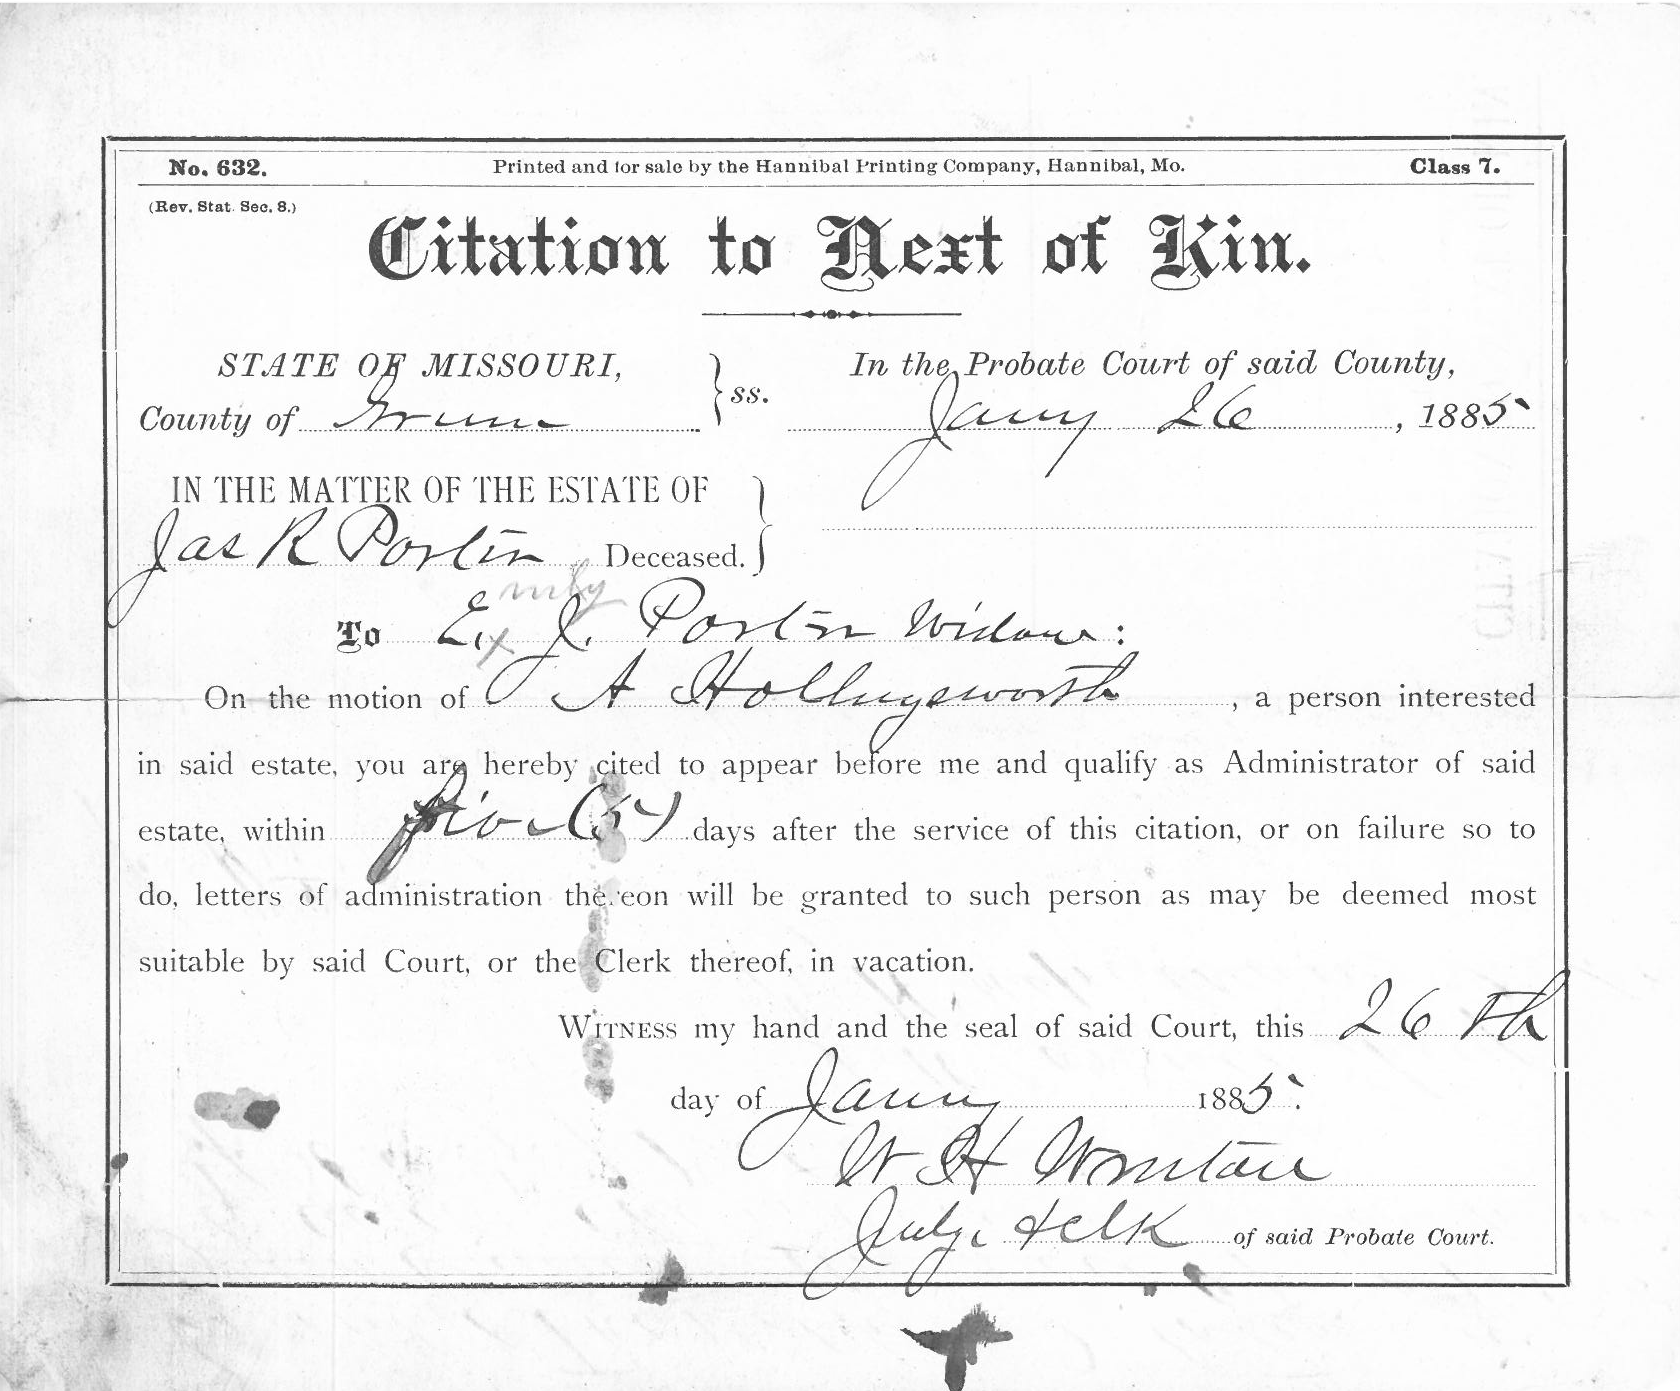 No. 632. Printed and for sale by the Hannibal Printing Company, Hannibal, Mo. Class 7.
(Rev. Stat. Sec. 8.)
Citation to Next of Kin.
STATE OF MISSOURI, } ss. In the Probate Court of said County,
County of Greene Jany 26, 1885
IN THE MATTER OF THE ESTATE OF }
Jas R Porter Deceased.
To E. J. Porter Widow:
On the motion of A Hollingsworth, a person interested
in said estate, you are hereby cited to appear before me and qualify as Administrator of said
estate, within five (5) days after the service of this citation, or on failure so to
do, letters of administration thereon will be granted to such person as may be deemed most
suitable by said Court, or the Clerk thereof, in vacation.
WITNESS my hand and the seal of said Court, this 26th
day of Jany 1885.
W H
Judge & clk of said Probate Court.